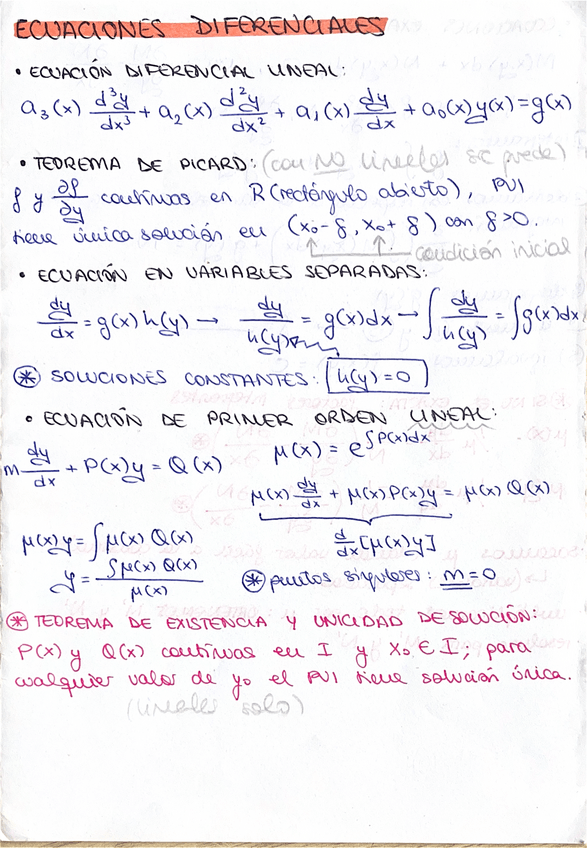 ECUACIONES DIFERENCIALES
• ECUACIÓN DIFERENCIAL LINEAL:
a₃(x) d³y/dx³ + a₂(x) d²y/dx² + a₁(x) dy/dx + a₀(x)y(x) = g(x)
• TEOREMA DE PICARD: (con NO lineales se puede)
f y ∂f/∂y continuas en R (rectángulo abierto), PVI
tiene única solución en (x₀-δ, x₀+δ) con δ>0.
condición inicial
• ECUACIÓN EN VARIABLES SEPARADAS:
dy/dx = g(x) h(y) → dy/h(y) = g(x)dx → ∫ dy/h(y) = ∫g(x)dx
⊛ SOLUCIONES CONSTANTES: h(y) = 0
• ECUACIÓN DE PRIMER ORDEN LINEAL:
m dy/dx + P(x)y = Q(x)
μ(x) = e^∫P(x)dx
μ(x) dy/dx + μ(x)P(x)y = μ(x) Q(x)
d/dx [μ(x)y]
μ(x)y = ∫μ(x) Q(x)
y = ∫μ(x) Q(x) / μ(x)
⊛ puntos singulares: m = 0
⊛ TEOREMA DE EXISTENCIA Y UNICIDAD DE SOLUCIÓN:
P(x) y Q(x) continuas en I y x₀ ∈ I; para
cualquier valor de y₀ el PVI tiene solución única.
(lineales solo)